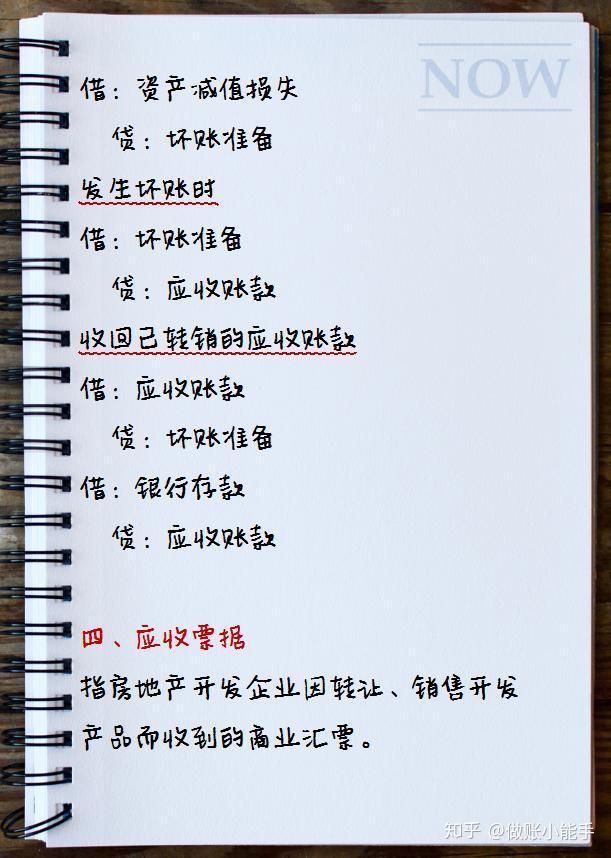 NOW
借：资产减值损失
贷：坏账准备
发生坏账时
借：坏账准备
贷：应收账款
收回已转销的应收账款
借：应收账款
贷：坏账准备
借：银行存款
贷：应收账款
四、应收票据
指房地产开发企业因转让、销售开发
产品而收到的商业汇票。
知乎 @做账小能手